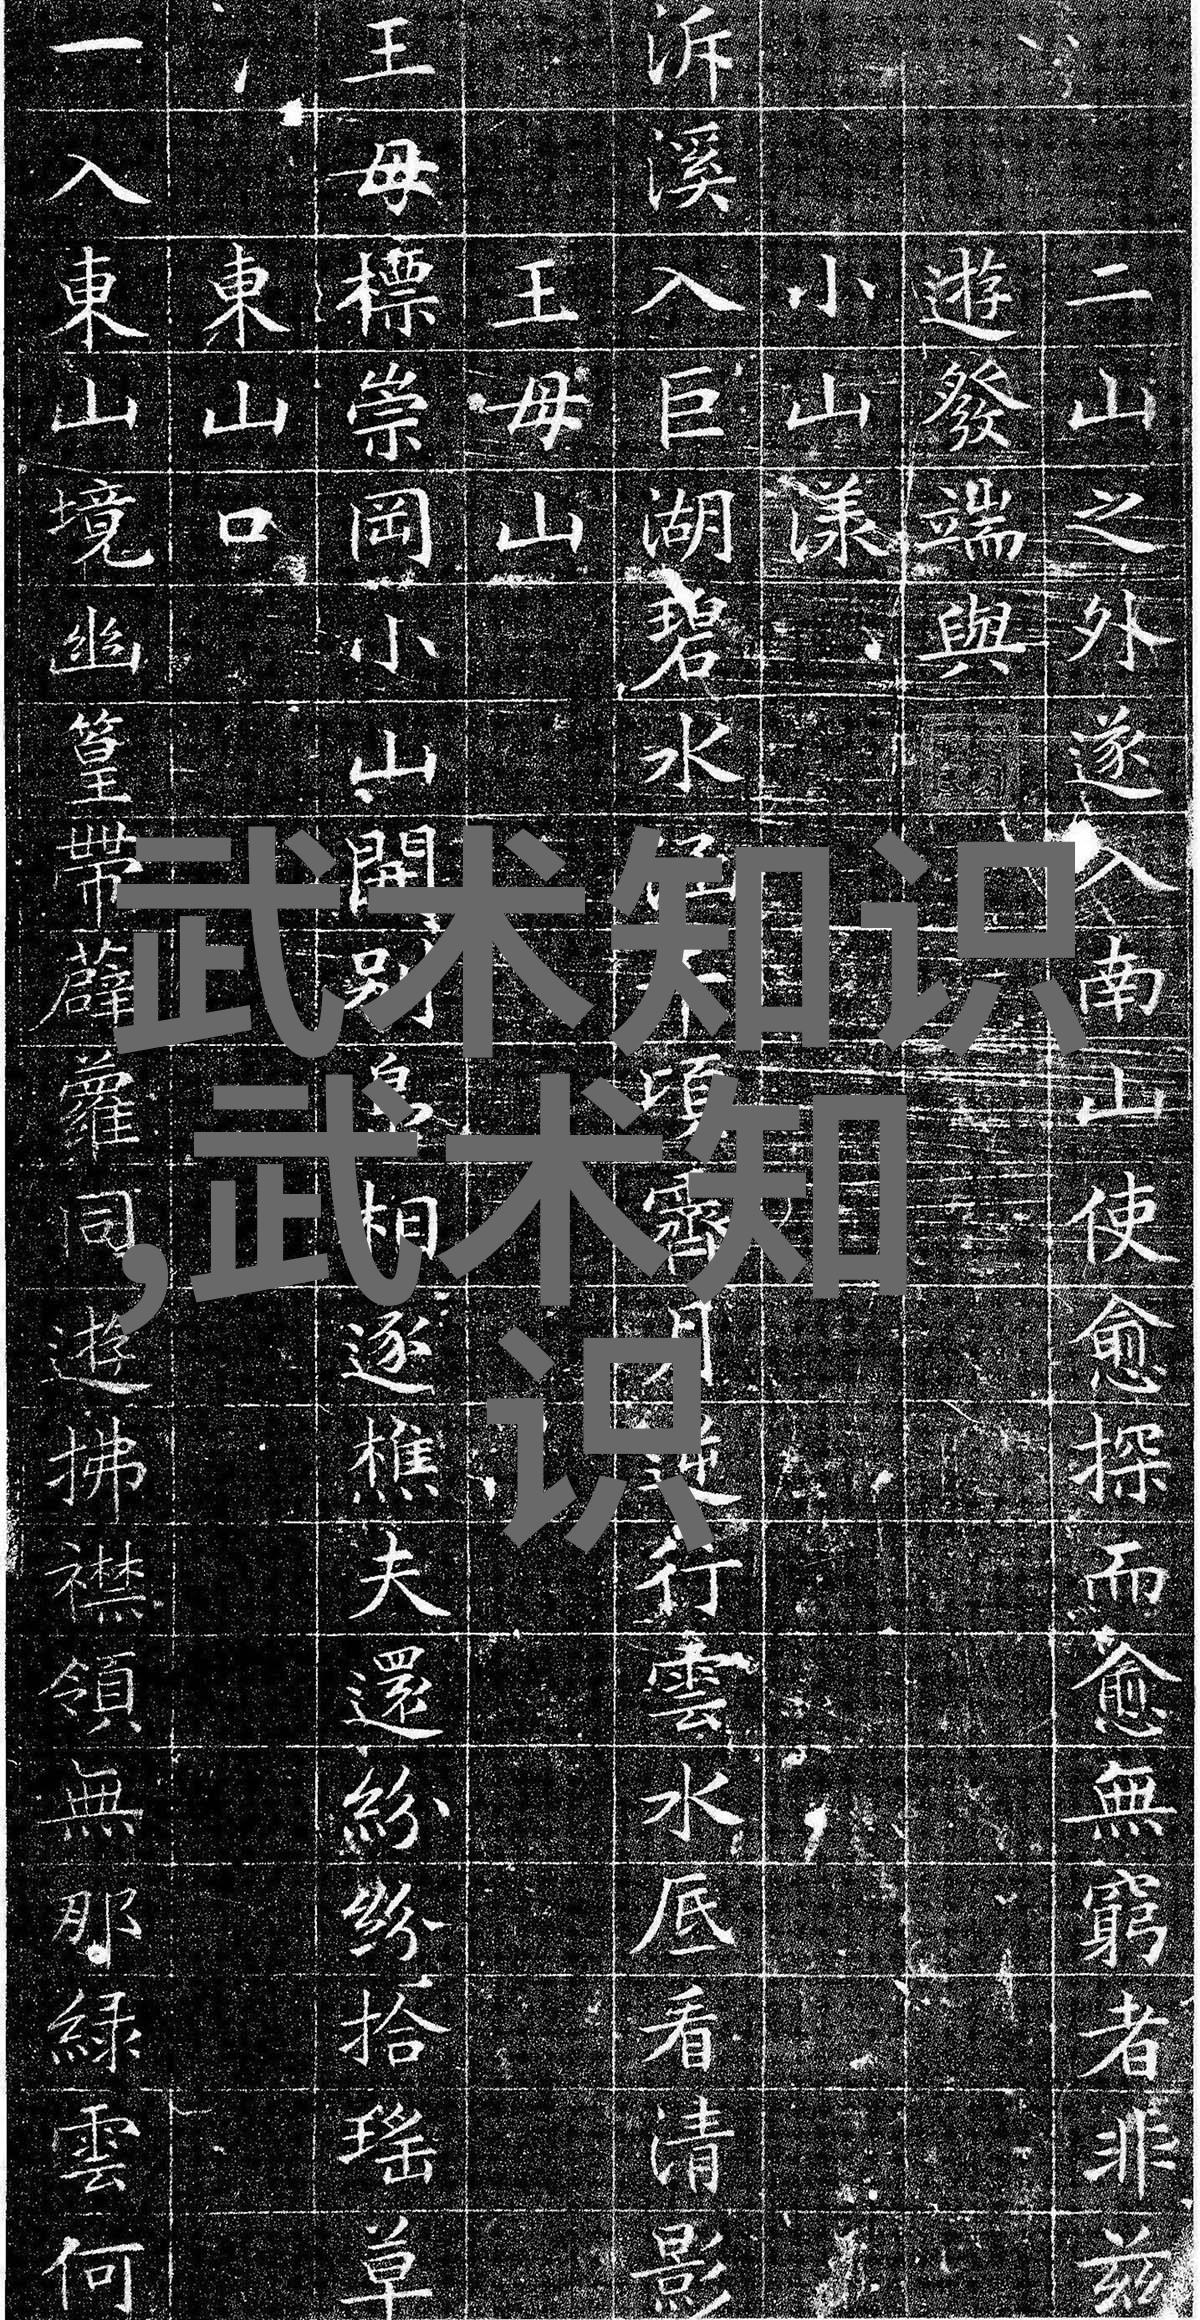 二山之外遂入南山使愈探而愈無窮者非茲
遊發端與
小山漾
泝溪入巨湖碧水千頃霽月逆行雲水底看清影
王母山
王母標崇岡小山開別相逐樵夫還紛紛拾瑤草
東山口
一入東山境幽篁帶薜蘿同遊拂襟領無那綠雲何
武术知识
,武术知
识